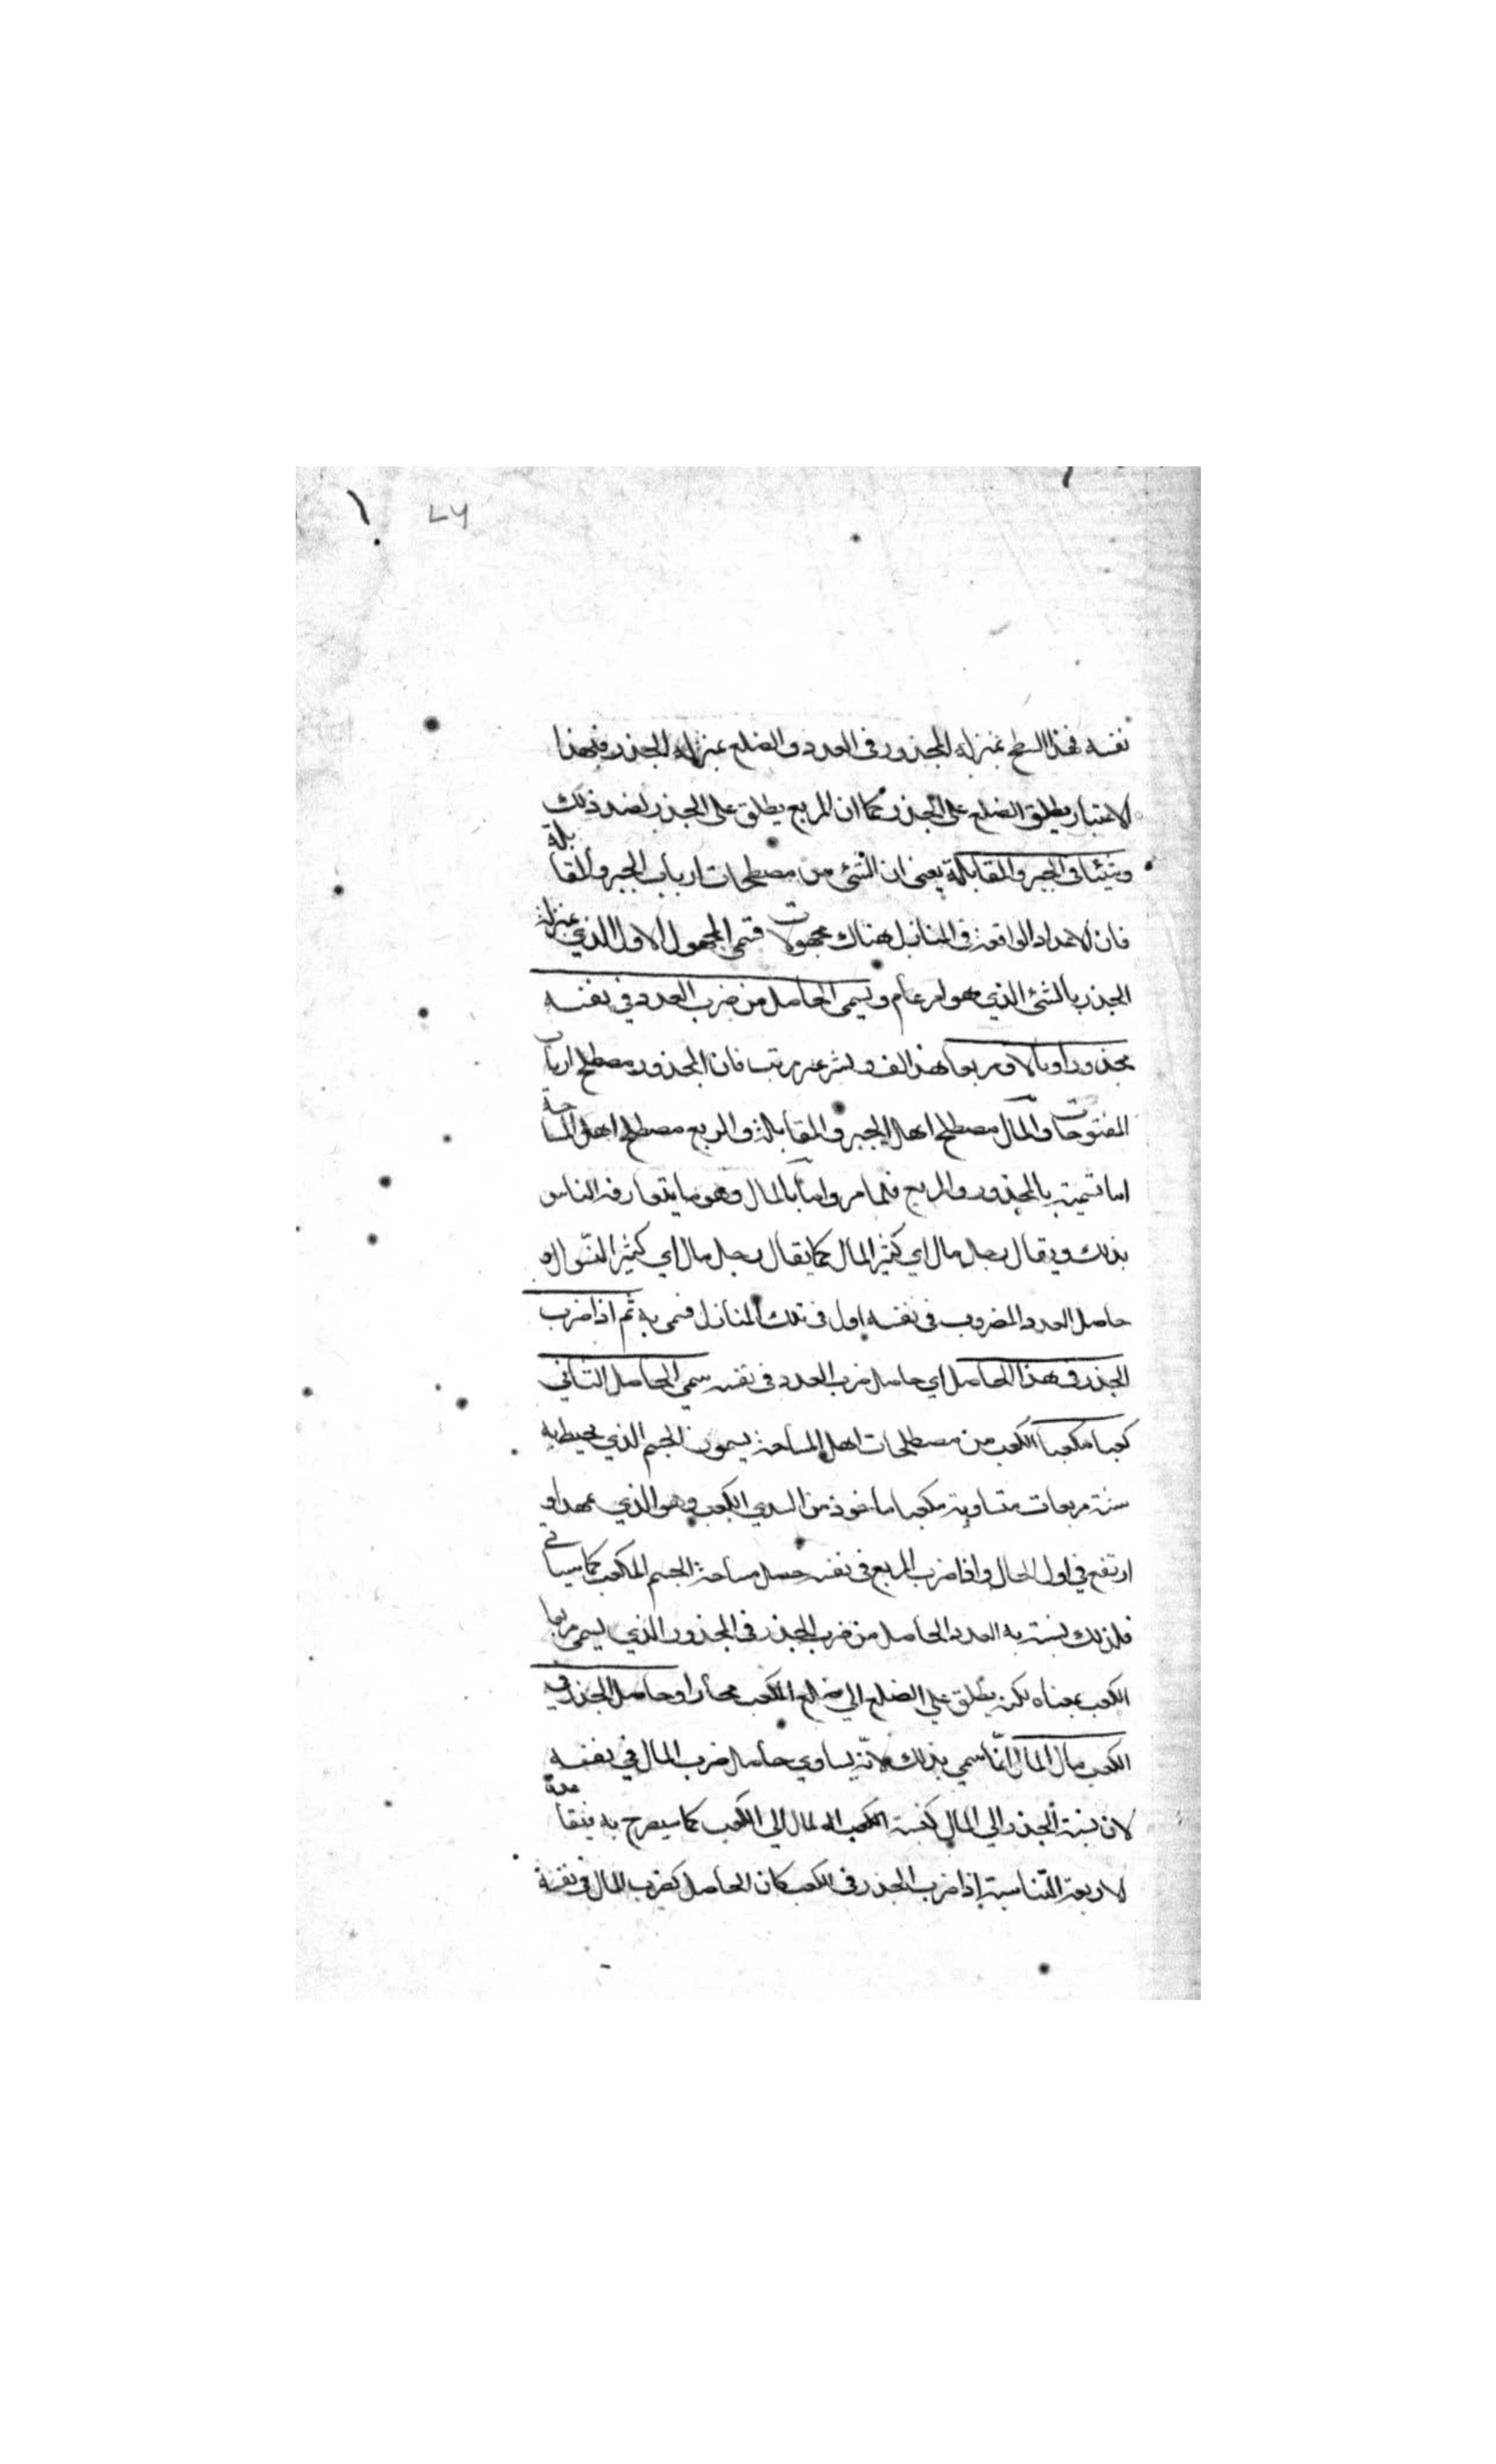 نفسه فهذا السطح بمنزلة المجذور فى العدد والضلع بمنزلة الجذر فبهذا
الاعتبار يطلق الضلع على الجذر كما ان المربع يطلق على الجذر لضد ذلك
وشيئا فى الجبر والمقابلة يعنى ان الشئ من مصطلحات ارباب الجبر والمقابلة
فان الاعداد الواقعة فى المنازل هناك مجهولات فسمى المجهول الاول الذي بمنزلة
الجذر بالشئ الذي هو امر عام ويسمى الحاصل من ضرب العدد في نفسه
مجذورا ومالا ومربعا هذا لف ونشر غير مرتب فان المجذور مصطلح ارباب
المفتوحات والمال مصطلح اهل الجبر والمقابلة والمربع مصطلح اهل المساحة
اما تسميته بالمجذور والمربع فلما مر واما بالمال وهو ما يتعارفه الناس
بذلك ويقال رجل مال اي كثير المال كما يقال رجل مال اي كثير النوال و
حاصل العدد المضروب فى نفسه اول فى تلك المنازل فسمى به ثم اذا ضرب
الجذر فى هذا الحاصل اي حاصل ضرب العدد فى نفسه سمي الحاصل الثاني
كعبا مكعبا الكعب من مصطلحات اهل المساحة يسمون الجسم الذي يحيط به
ستة مربعات متساوية مكعبا ماخوذ من الكعب وهو الذي
ارتفع في اول الحال واذا ضرب المربع فى نفسه حصل مساحة الجسم المكعب كما سياتي
فلذلك يسمى به العدد الحاصل من ضرب الجذر فى المجذور الذي يسمى مربعا
الكعب بمعناه لكن يطلق على الضلع اي ضلع المكعب مجازا وحاصل الجذر في
الكعب مال المال انما سمي بذلك لانه يساوي حاصل ضرب المال في نفسه
لان نسبة الجذر الي المال كنسبة المال الي الكعب كما سيصرح به فبقاعدة
الاربعة المتناسبة اذا ضرب الجذر فى الكعب كان الحاصل كضرب المال فى نفسه